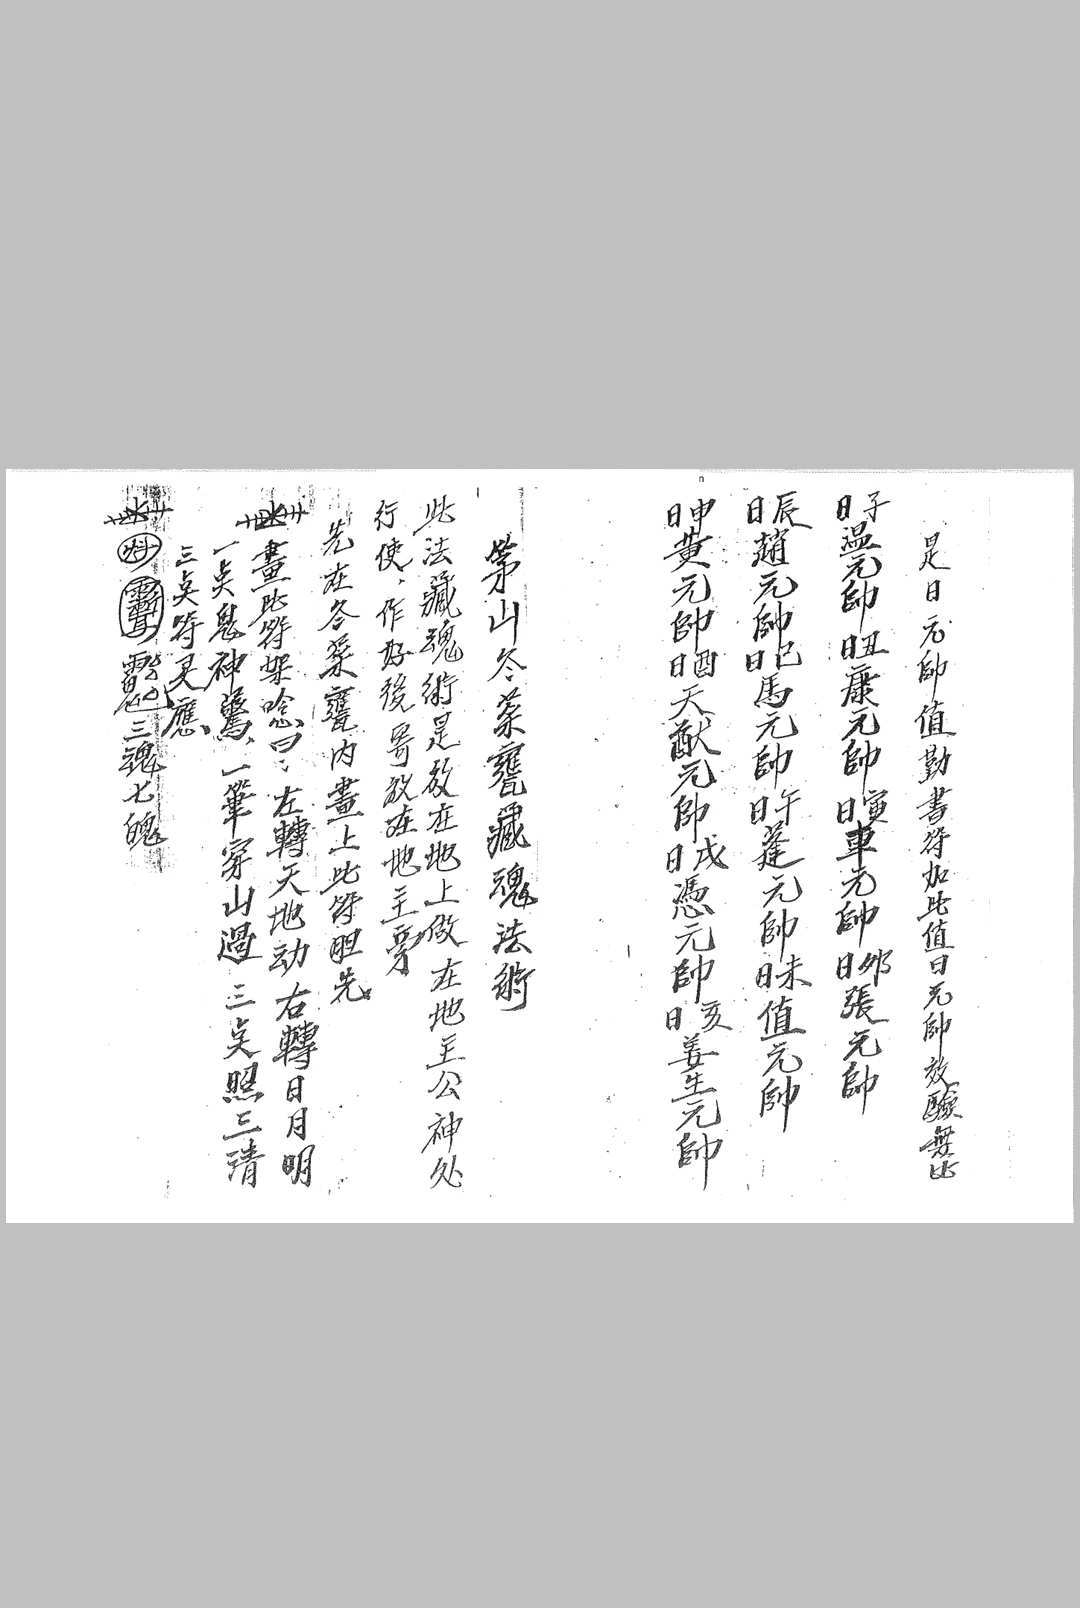 是日元帥值勤書符加此值日元帥效驗無比
子日溫元帥 丑日康元帥 寅日車元帥 卯日張元帥
辰日趙元帥 巳日馬元帥 午日蓬元帥 未日值元帥
申日黄元帥 酉日天猷元帥 戌日憑元帥 亥日姜生元帥
茅山冬菜甕藏魂法術
此法藏魂術是放在地上做在地主公神处
行使，作好後放在地主
先在冬菜甕内畫上此符胆先
畫此符架唸曰：左轉天地动右轉日月明
一点鬼神驚，一筆穿山過三点照三清
三点符灵應
三魂七魄